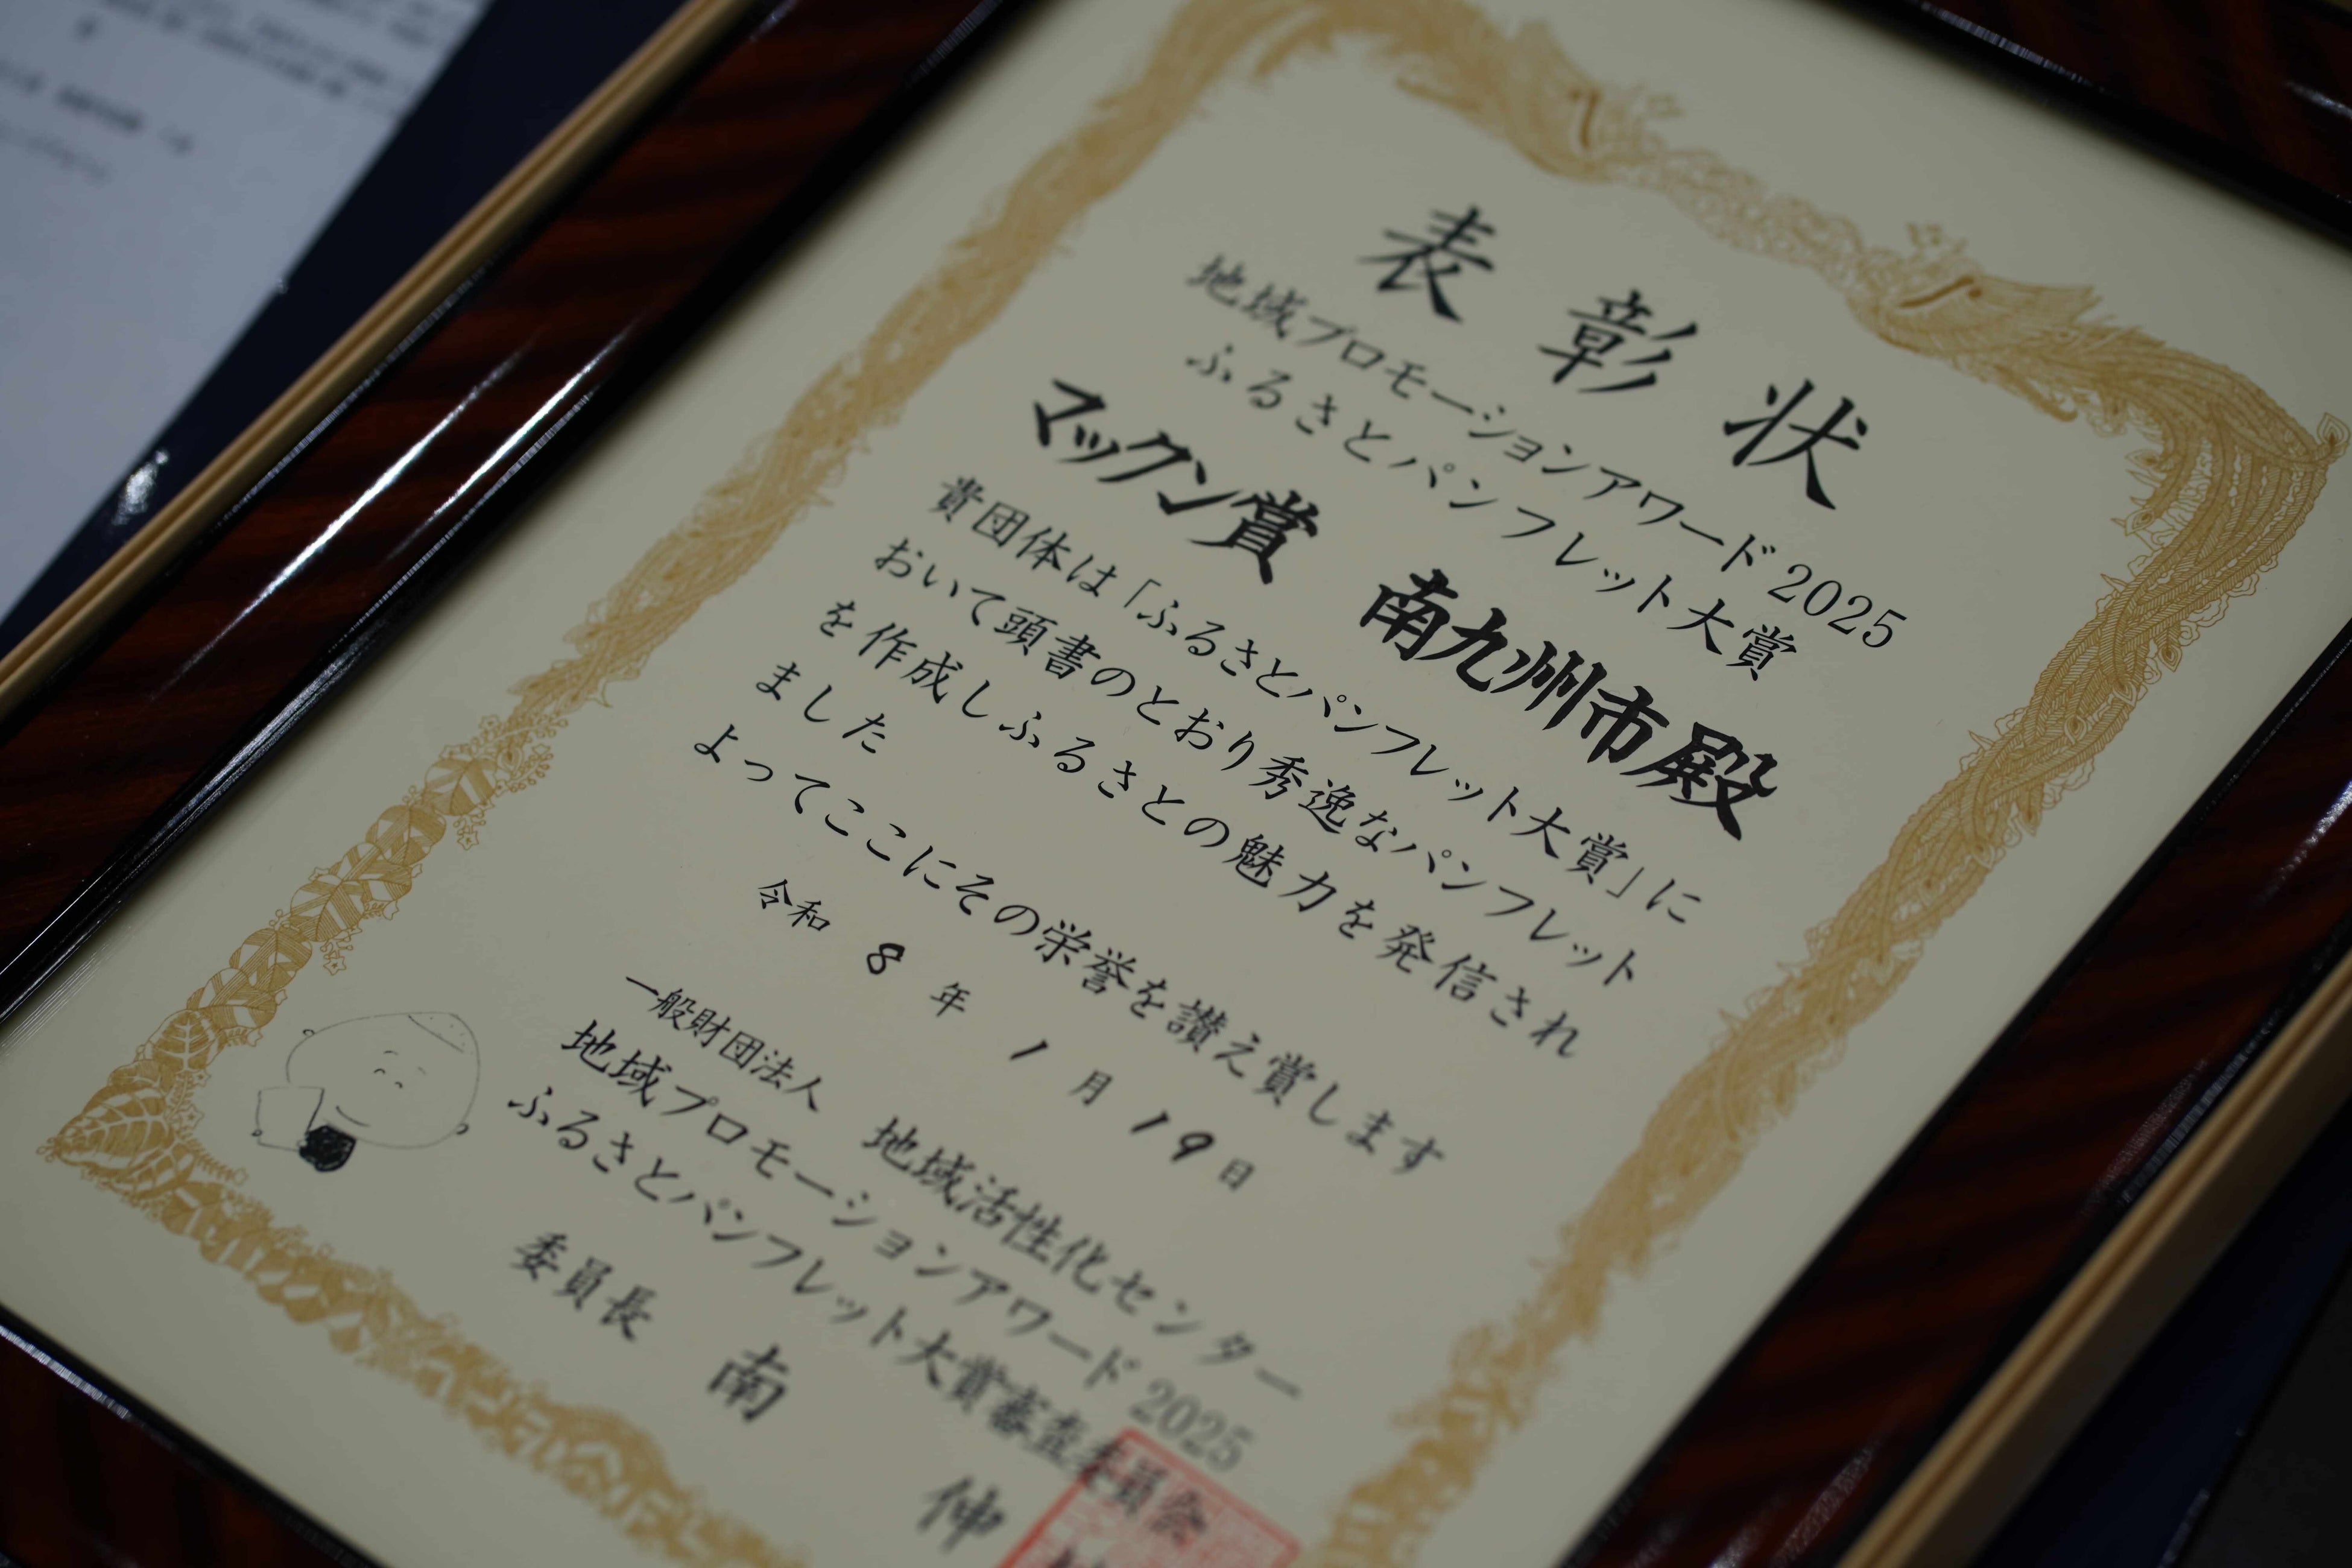 表彰状
地域プロモーションアワード2025
ふるさとパンフレット大賞
マックン賞 南九州市殿
貴団体は「ふるさとパンフレット大賞」に
おいて頭書のとおり秀逸なパンフレット
を作成しふるさとの魅力を発信され
ました
よってここにその栄誉を讃え賞します
令和 8 年 1 月 19 日
一般財団法人 地域活性化センター
地域プロモーションアワード2025
ふるさとパンフレット大賞審査委員会
委員長 南 伸